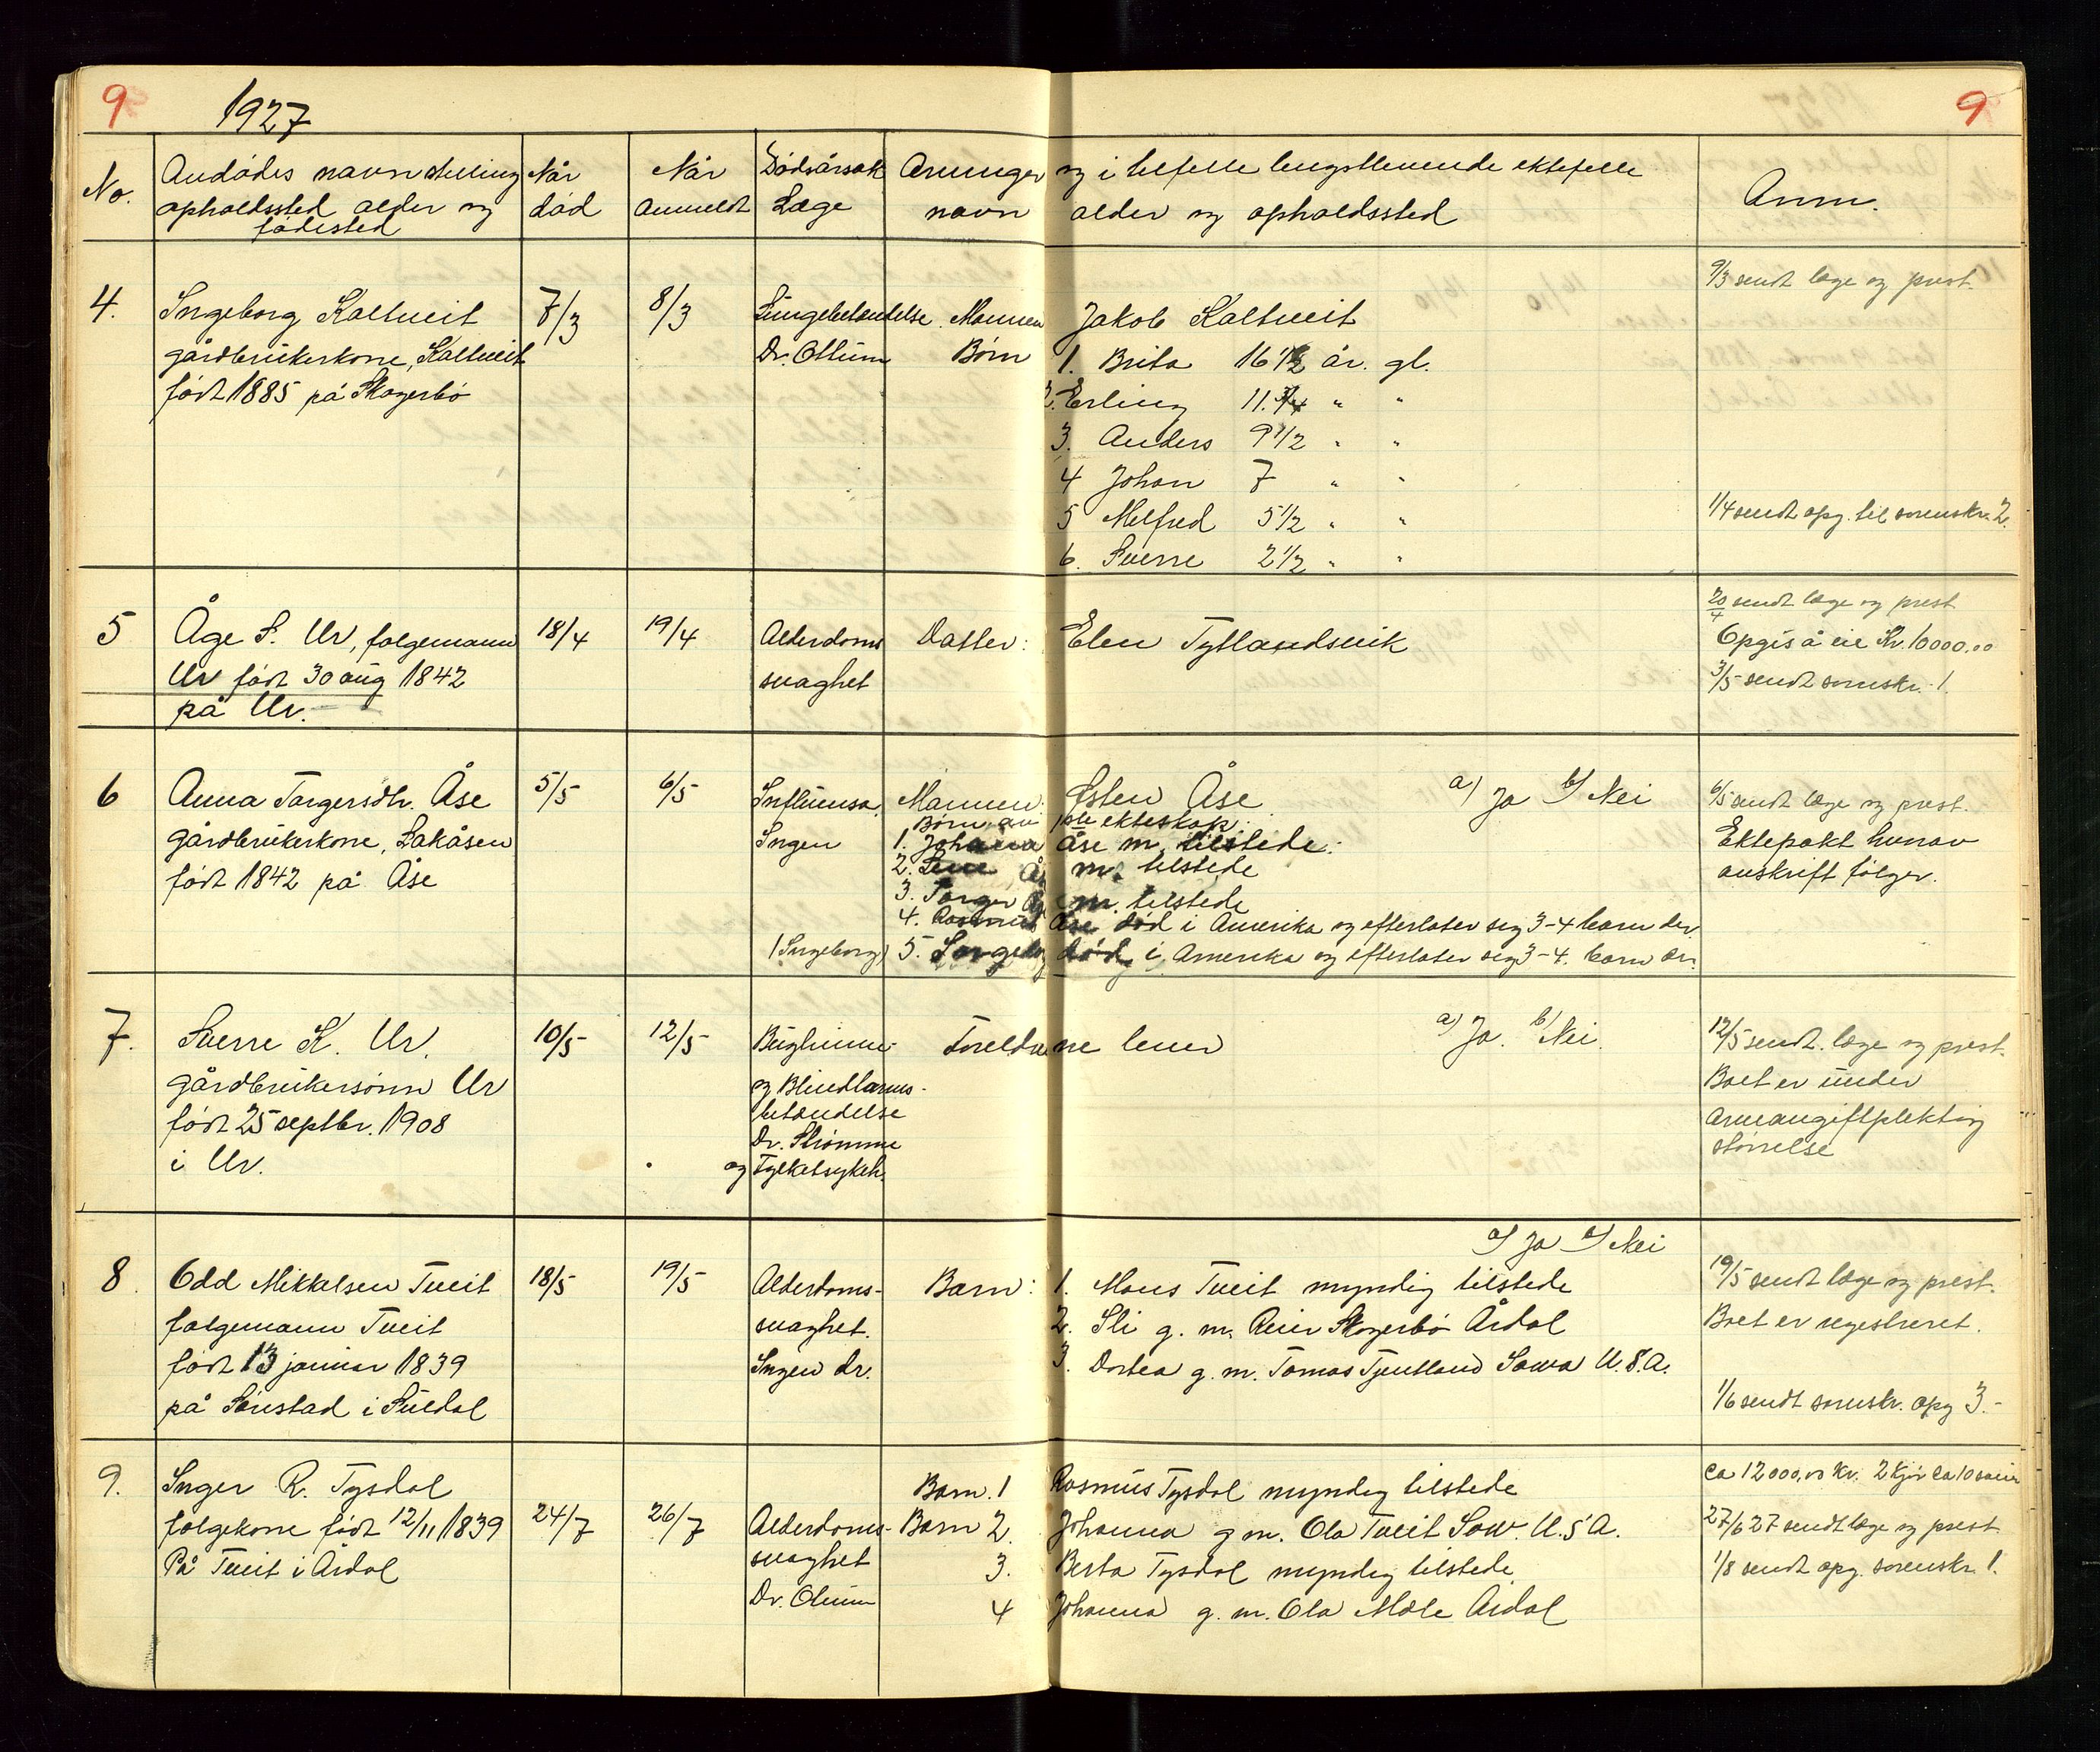 9 1927 9
No. Avdødes navn stilling opholdssted alder og fødested | Når død | Når anmeldt | Dødsårsak Læge | Arvinger og i tilfelle lengstlevende ektefelle navn alder og opholdssted | Anm.
9/3 sendt læge og prest.
4. Ingeborg Kaltveit 7/3 8/3 Lungebetændelse. Mannen Jakob Kaltveit
gårdbrukerkone, Kaltveit Dr. Ottum Børn 1. Brita 16 1/2 år. gl.
født 1885 på Skogerbø 2. Erling 11. 3/4 " "
3. Anders 9 1/2 " "
4 Johan 7 " "
5 Melfred 5 1/2 " " 1/4 sendt opg. til sorenskr. 2.
6. Sverre 2 1/2 " "
20/4 sendt læge og prest
5 Åge S. Ur, folgemann 18/4 19/4 Alderdoms Datter: Elen Tytlandsvik Opgis å eie Kr. 10000.00
Ur født 30 aug 1842 svaghet 3/5 sendt sorenskr. 1.
på Ur.
6 Anna Torgersdtr. Åse 5/5 6/5 Influensa Mannen: Østen Åse a) Ja b) Nei 6/5 sendt læge og prest.
Børn av 1ste ekteskap:
gårdbrukerkone, Lakåsen Ingen 1. Johanna Åse m. tilstede. Ektepakt hvorav
født 1842 på Åse 2. Lene Å m. tilstede avskrift følger.
3. Torger Å m. tilstede
4. Rasmus Åse død i Amerika og efterlater seg 3-4 barn der
(Ingeborg) 5. Ingeborg død i Amerika og efterlater seg 3-4. barn der.
7. Sverre K. Ur. 10/5 12/5 Bughinne- Foreldrene lever a) Ja. b) Nei. 12/5 sendt. læge og prest.
gårdbrukersønn Ur og Blindtarms- Boet er under
født 25 septbr. 1908 betændelse Arveavgiftpliktig
i Ur. Dr. Strømme størrelse
og Fylketsykeh.
a) Ja b) Nei
8. Odd Mikkelsen Tveit 18/5 19/5 Alderdoms- Barn: 1. Mons Tveit myndig tilstede 19/5 sendt læge og prest.
folgemann Tveit svaghet. 2. Sli g. m. Reier Skogerbø Årdal Boet er registreret.
født 13 januar 1839 Ingen dr. 3. Dortea g. m. Tomas Tjentland Iowa U.S.A.
på Sørestad i Suldal 1/6 sendt sorenskr. opg 3.-
9. Inger R. Tysdal Barn. 1 Rasmus Tysdal myndig tilstede ca 12000,00 kr. 2 kjør ca 10 sauer
folgekone født 12/11 1839 24/7 26/7 Alderdoms- Barn 2. Johanna g m. Ola Tveit Iow. U.S A. 27/6 27 sendt læge og prest
På Tveit i Årdal svaghet 3. Berta Tysdal myndig tilstede 1/8 sendt opg. sorenskr. 1.
Dr. Otium 4 Johanna g. m. Ola Mæle Årdal